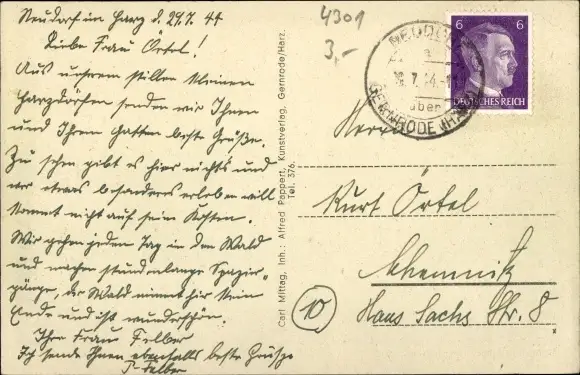 Neudorf im Harz d. 29.7.44
Liebe Frau Örtel!
Aus unserem stillen kleinen
Harzdörfchen senden wir Ihnen
und Ihrem Gatten beste Grüße.
Zu sehen gibt es hier nichts und
wer etwas besonderes erleben will
kommt nicht auf sein Kosten.
Wir gehen jeden Tag in den Wald
und machen stundenlange Spazier-
gänge, der Wald nimmt hier kein
Ende und ist wunderschön.
Ihre Frau Felber
Ich sende Ihnen ebenfalls beste Grüße
P. Felber
Carl Mittag, Inh.: Alfred Pappert, Kunstverlag, Gernrode/Harz.
Tel. 376.
4301
3,-
NEUDORF
über
GERNRODE (HARZ)
6 6
DEUTSCHES REICH
Herrn
Kurt Örtel
Chemnitz
10
Hans Sachs Str. 8